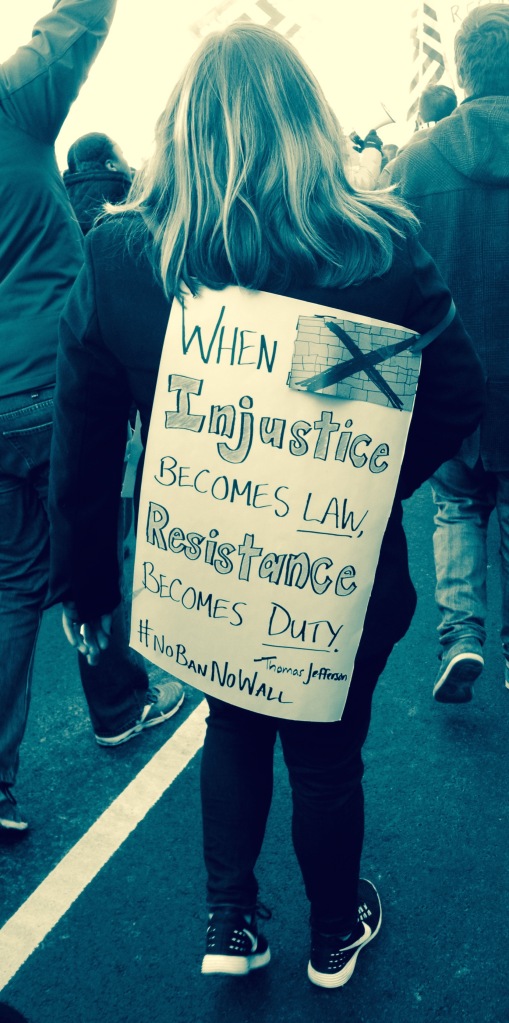 WHEN
Injustice
BECOMES LAW,
Resistance
BECOMES DUTY.
-Thomas Jefferson
#NOBANNOWALL